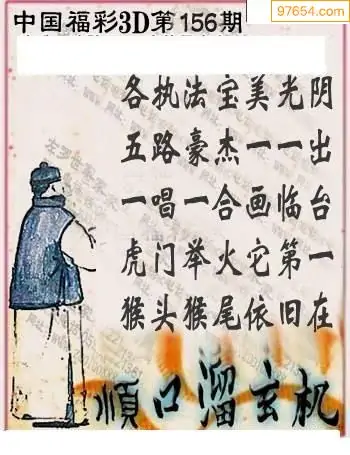 97654.com
中国福彩3D第156期
各执法宝美光阴
五路豪杰一一出
一唱一合画临台
虎门举火它第一
猴头猴尾依旧在
顺口溜玄机